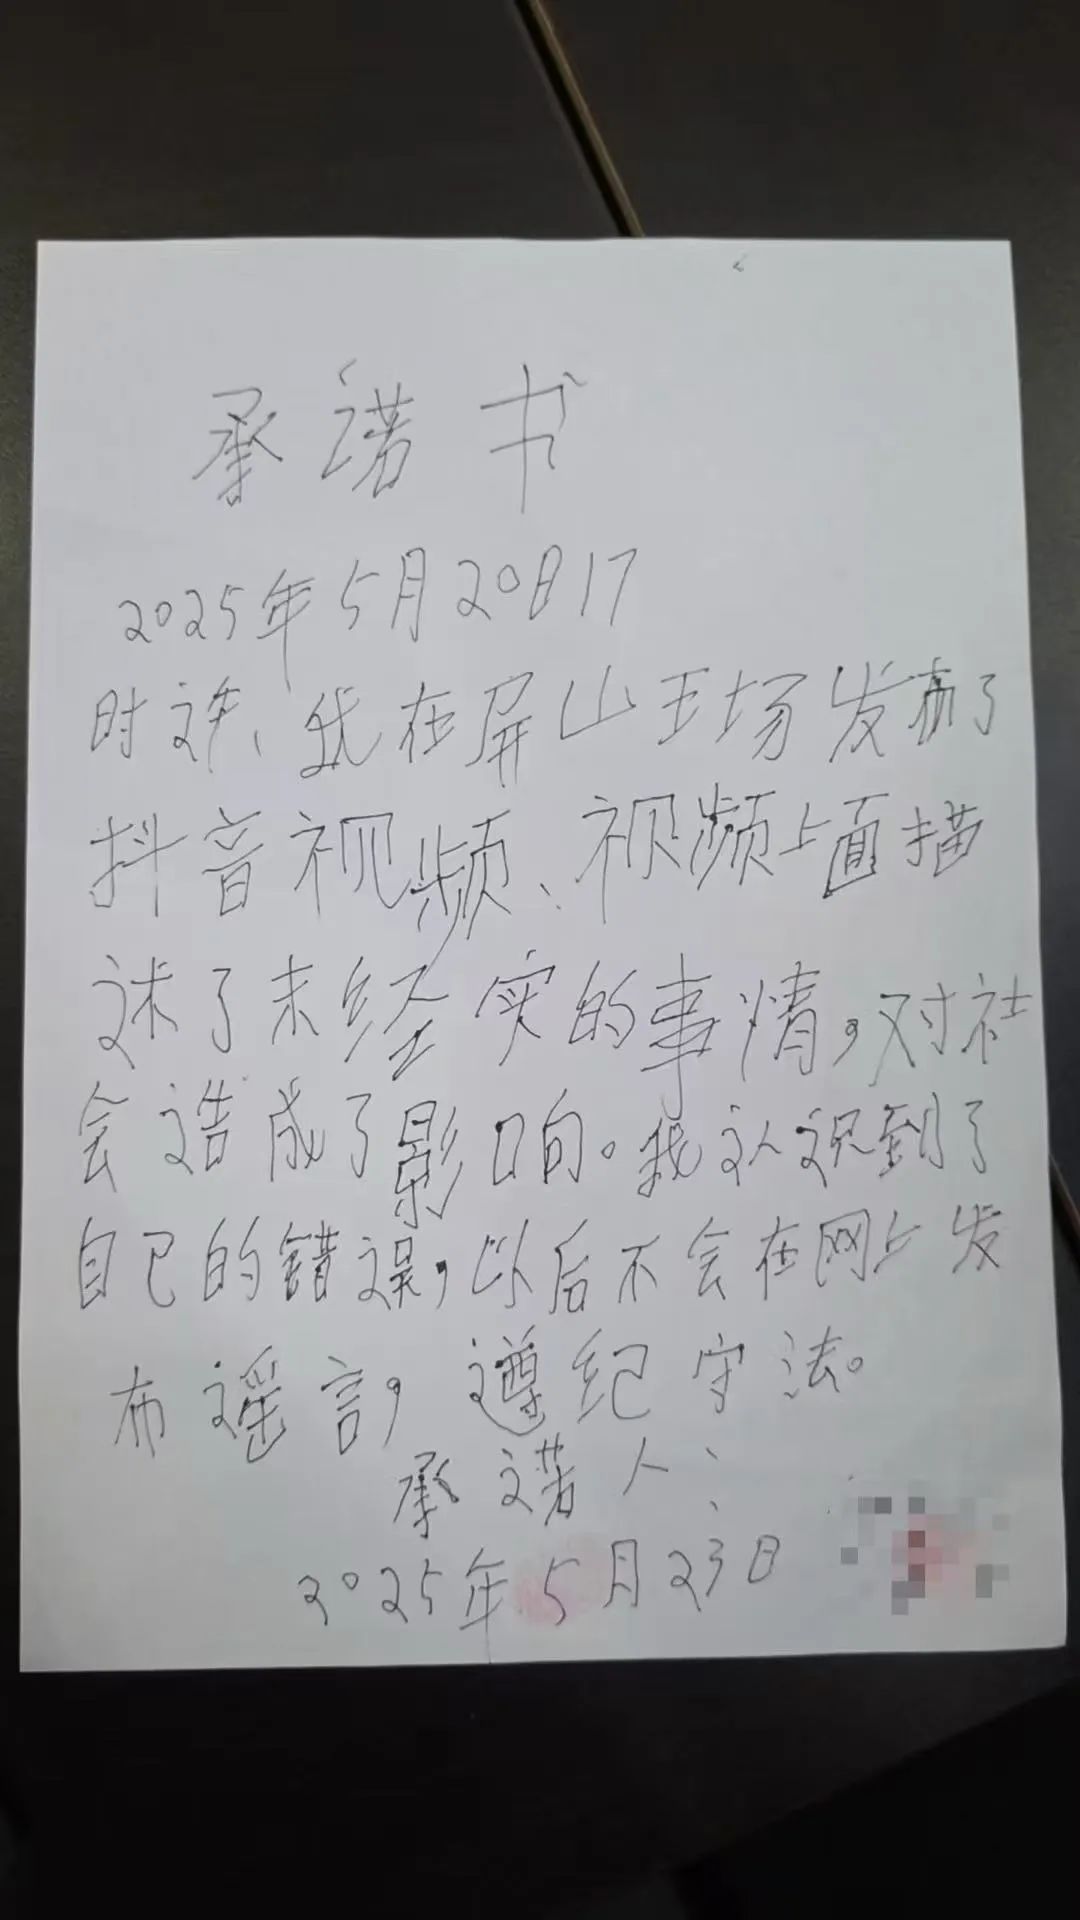 承诺书
2025年5月20日17
时许、我在屏山王场发布了
抖音视频、视频上面描
述了未经实的事情，对社
会造成了影响。我认识到了
自己的错误，以后不会在网上发
布谣言，遵纪守法。
承诺人：
2025年5月23日